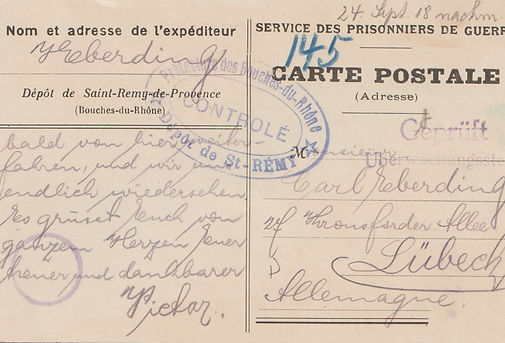 24. Sept. 18 nachm.
Nom et adresse de l'expéditeur
Eberding
Dépôt de Saint-Remy-de-Provence
(Bouches-du-Rhône)
bald von hier weiter-
fahren, und wir uns
endlich wiedersehen.
Es grüsst Euch von
ganzem Herzen Euer
treuer und dankbarer
Victor.
SERVICE DES PRISONNIERS DE GUERR
145
CARTE POSTALE
(Adresse)
Geprüft
Monsieur
Carl Eberding
Thronsforder Allee
Lübeck
Allemagne.
des Bouches-du-Rhône
CONTROLE
Dépôt de St-RÉMY